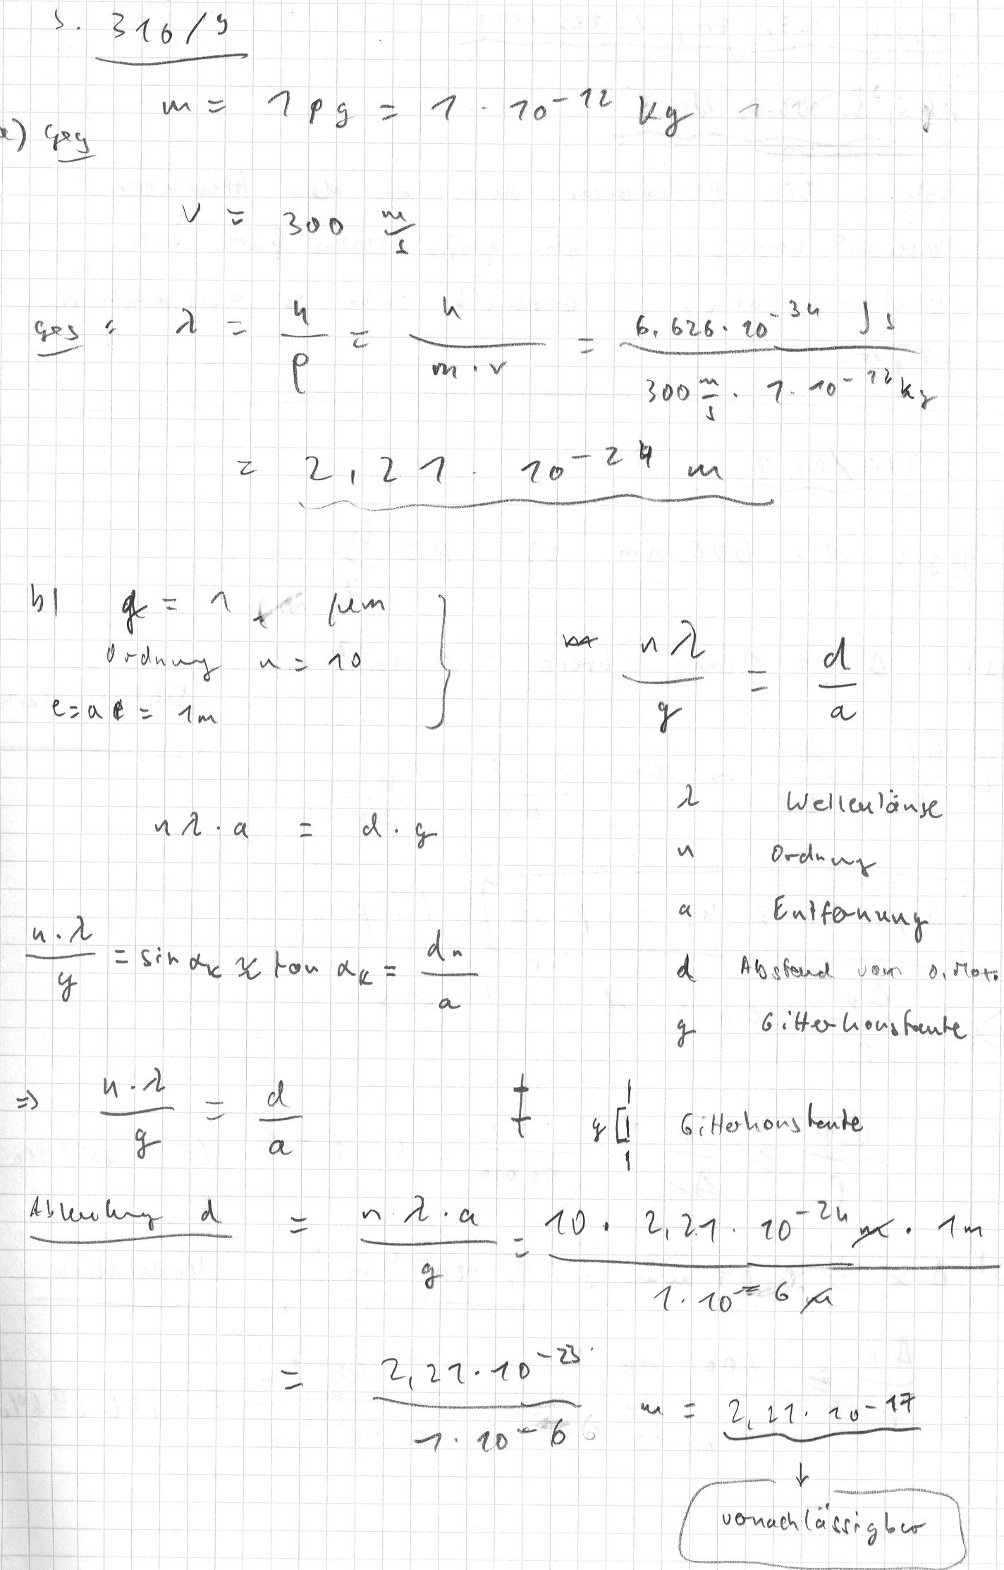 S. 316/9
m = 1 pg = 1 · 10⁻¹² kg
a) geg
v = 300 m/s
ges: λ = h/p = h/(m · v) = (6,626 · 10⁻³⁴ Js)/(300 m/s · 1 · 10⁻¹² kg)
= 2,21 · 10⁻²⁴ m
b) g = 1 µm
Ordnung n = 10
e = a = 1m
nλ/g = d/a
nλ · a = d · g
λ Wellenlänge
n Ordnung
a Entfernung
d Abstand vom 0. Max.
g Gitterkonstante
n · λ/g = sin αₖ ≈ tan αₖ = dₙ/a
⇒ n · λ/g = d/a
g Gitterkonstante
Ablenkung d = n · λ · a/g = (10 · 2,21 · 10⁻²⁴ m · 1m)/(1 · 10⁻⁶ m)
= 2,21 · 10⁻²³/(1 · 10⁻⁶) m = 2,21 · 10⁻¹⁷
↓
vernachlässigbar